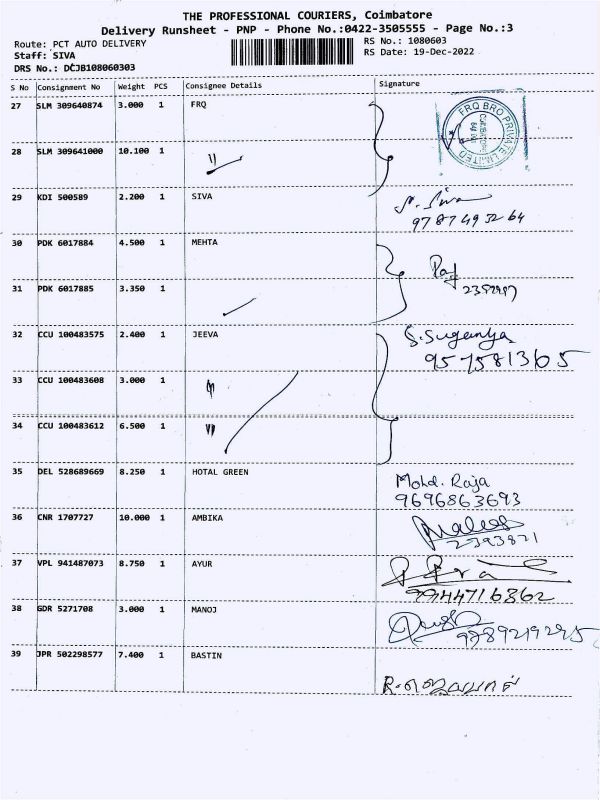 THE PROFESSIONAL COURIERS, Coimbatore
Delivery Runsheet - PNP - Phone No.:0422-3505555 - Page No.:3
Route: PCT AUTO DELIVERY RS No.: 1080603
Staff: SIVA RS Date: 19-Dec-2022
DRS No.: DCJB108060303
S No Consignment No Weight PCS Consignee Details Signature
27 SLM 309640874 3.000 1 FRQ
FRQ BRO PRIVATE LIMITED
28 SLM 309641000 10.100 1 "
29 KDI 500589 2.200 1 SIVA
9787493264
30 PDK 6017884 4.500 1 MEHTA
31 PDK 6017885 3.350 1
32 CCU 100483575 2.400 1 JEEVA S. Suganya
957581365
33 CCU 100483608 3.000 1 "
34 CCU 100483612 6.500 1 "
35 DEL 528689669 8.250 1 HOTAL GREEN Mohd. Raja
9696863693
36 CNR 1707727 10.000 1 AMBIKA
2393821
37 VPL 941487073 8.750 1 AYUR
9944716362
38 GDR 5271708 3.000 1 MANOJ
9789219295
39 JPR 502298577 7.400 1 BASTIN